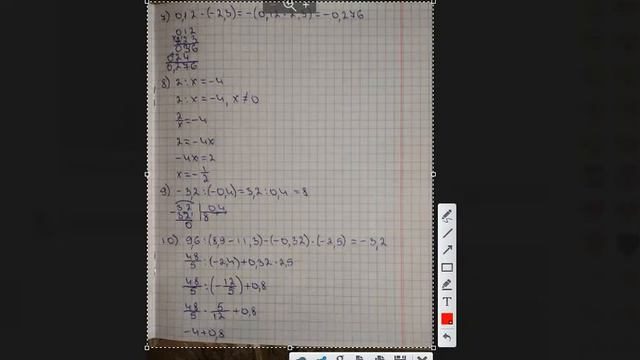 7) 0,12 · (-2,3) = -(0,12 · 2,3) = -0,276
0,12
×2,3
036
024
0,276
8) 2 : x = -4
2 : x = -4, x ≠ 0
2/x = -4
2 = -4x
-4x = 2
x = -1/2
9) -3,2 : (-0,4) = 3,2 : 0,4 = 8
-3,2 | 0,4
32 8
0
10) 9,6 : (8,9 - 11,3) - (-0,32) · (-2,5) = -3,2
48/5 : (-2,4) + 0,32 · 2,5
48/5 : (-12/5) + 0,8
48/5 · 5/12 + 0,8
-4 + 0,8
T